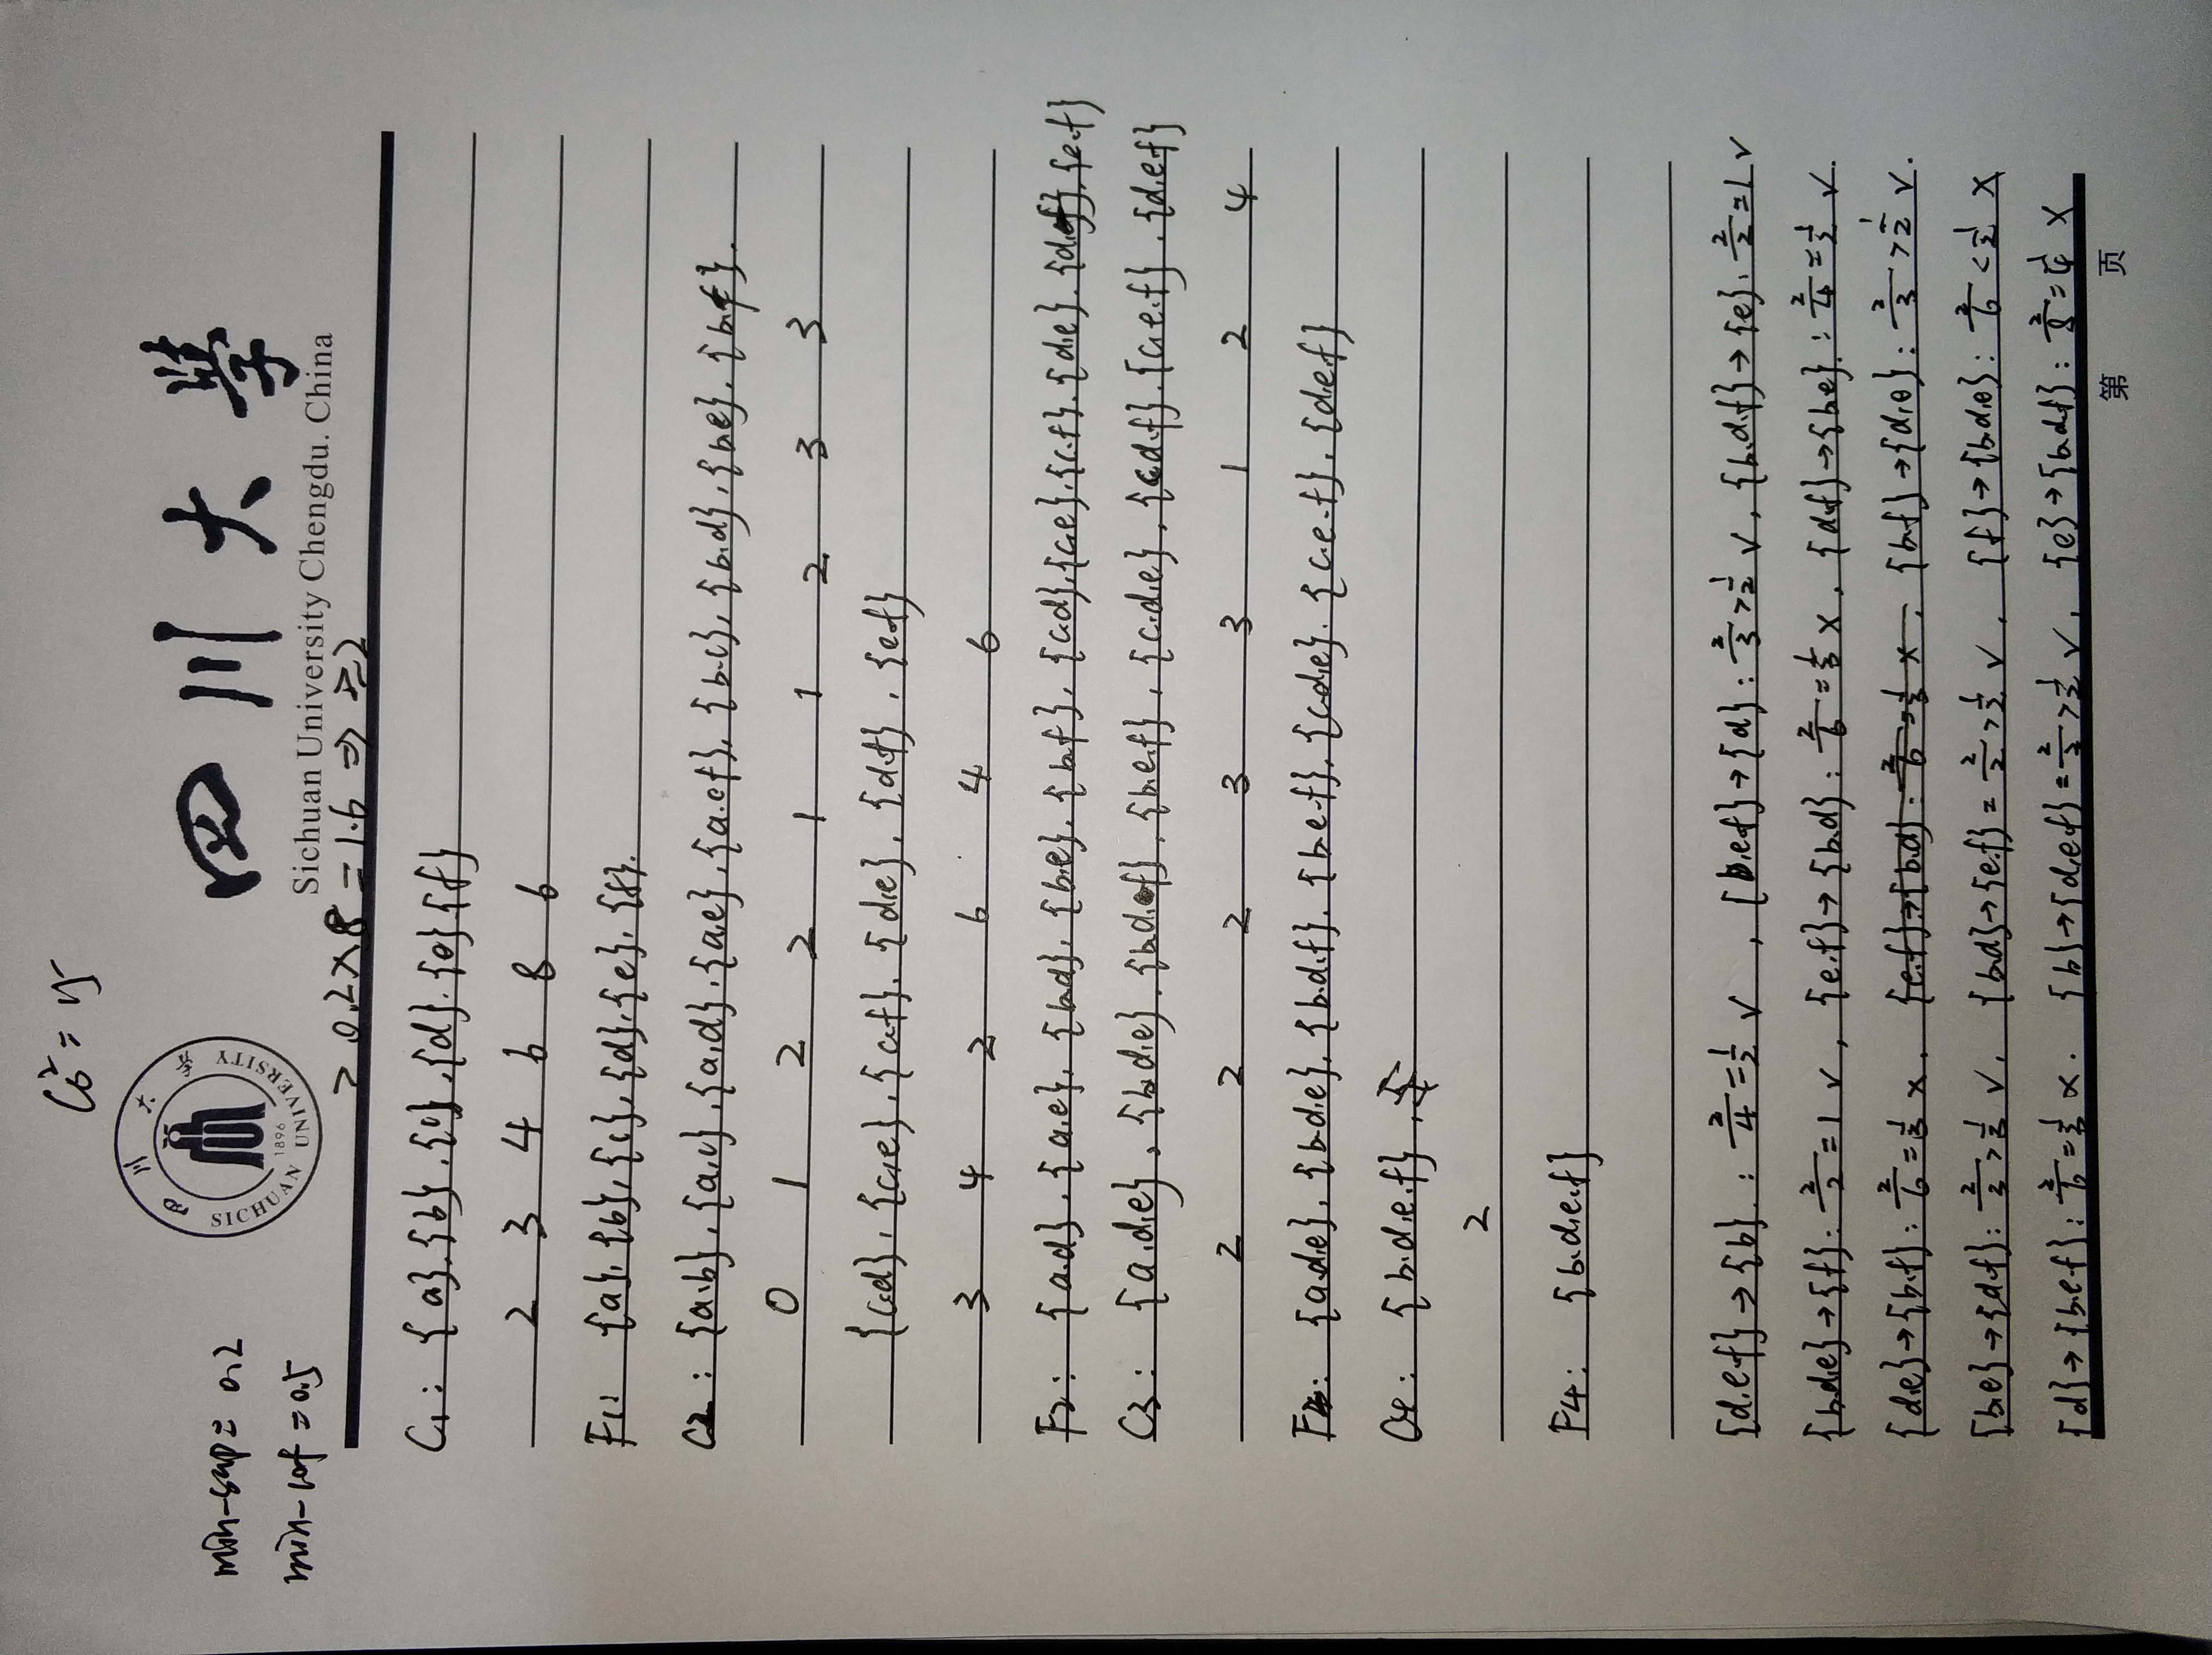 C₆² = 15
四川大學
Sichuan University Chengdu. China
四川大学 SICHUAN UNIVERSITY 1896
min-sup = 0.2
min-cof = 0.5
> 0.2×8 = 1.6 ⇒ ≥2
C₁: {a}.{b}.{c}.{d}.{e}{f}
2 3 4 6 8 6
F₁: {a}.{b}.{c}.{d}.{e}.{f}.
C₂: {a.b}.{a.c}.{a.d}.{a.e}.{a.f}.{b.c}.{b.d}.{b.e}.{b.f}.
0 1 2 2 1 1 2 3 3
{c.d}.{c.e}.{c.f}.{d.e}.{d.f}.{e.f}
3 4 2 6 4 6
F₂: {a.d}.{a.e}.{b.d}.{b.e}.{b.f}.{c.d}.{c.e}.{c.f}.{d.e}.{d.f}.{e.f}
C₃: {a.d.e}.{b.d.e}.{b.d.f}.{b.e.f}.{c.d.e}.{c.d.f}.{c.e.f}.{d.e.f}
2 2 2 3 3 1 2 4
F₃: {a.d.e}.{b.d.e}.{b.d.f}.{b.e.f}.{c.d.e}.{c.e.f}.{d.e.f}
C₄: {b.d.e.f}
2
F₄: {b.d.e.f}
{d.e.f}→{b}: 2/4=1/2 ✓, {b.e.f}→{d}: 2/3>1/2 ✓, {b.d.f}→{e}. 2/2=1 ✓
{b.d.e}→{f}: 2/2=1 ✓, {e.f}→{b.d}: 2/6=1/3 ×, {d.f}→{b.e}: 2/4=1/2 ✓
{d.e}→{b.f}: 2/6=1/3 ×. {e.f}→{b.d}: 2/6=1/3 ×. {b.f}→{d.e}: 2/3>1/2 ✓.
{b.e}→{d.f}: 2/3>1/2 ✓. {b.d}→{e.f}= 2/2>1/2 ✓. {f}→{b.d.e}: 2/6<1/2 ×
{d}→{b.e.f}: 2/6=1/3 ×. {b}→{d.e.f}= 2/3>1/2 ✓. {e}→{b.d.f}: 2/8=1/4 ×
第 页